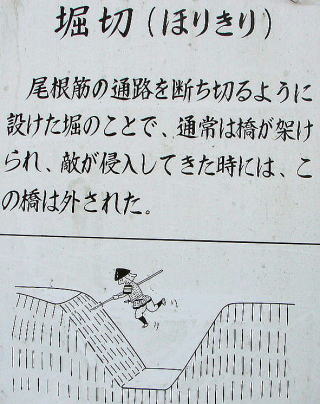 堀切(ほりきり)
尾根筋の通路を断ち切るように
設けた堀のことで、通常は橋が架け
られ、敵が侵入してきた時には、こ
の橋は外された。